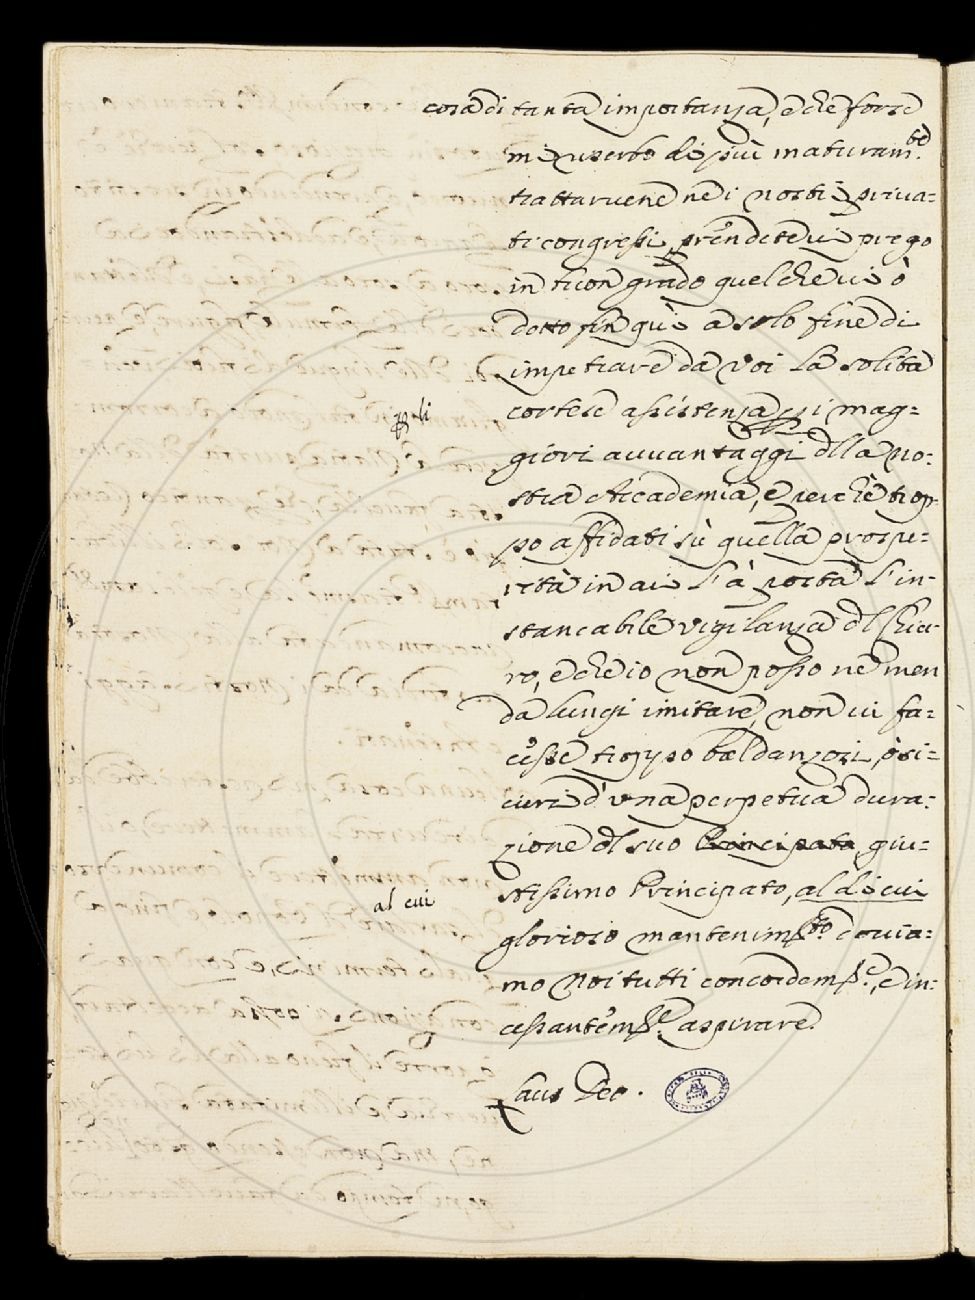 cosa di tanta importanza, e che forse
mi riserbo di più maturam.te
trattarvene nei nostri priva=
ti congressi, prendetevi prego
in ricongrado quel che vi ò
detto fin qui a solo fine di
impetrare da voi la solita
cortese assistenza pei mag=
gli
giori avvantaggi dlla no=
stra Accademia, e perchè trop=
po affidati sù quella prospe=
rità in cui l'à posta l'in=
stancabile vigilanza dl Chia=
ro, e che io non posso nè men
da lungi imitare, non vi fa=
cesse troppo baldanzosi, o si=
curi d'una perpetua dura=
zione dl suo Principato giu=
stissimo Principato, al di cui
al cui
glorioso mantenim.to dovia=
mo Noi tutti concordem.e, e in=
cessantem.e aspirare.
Laus Deo.